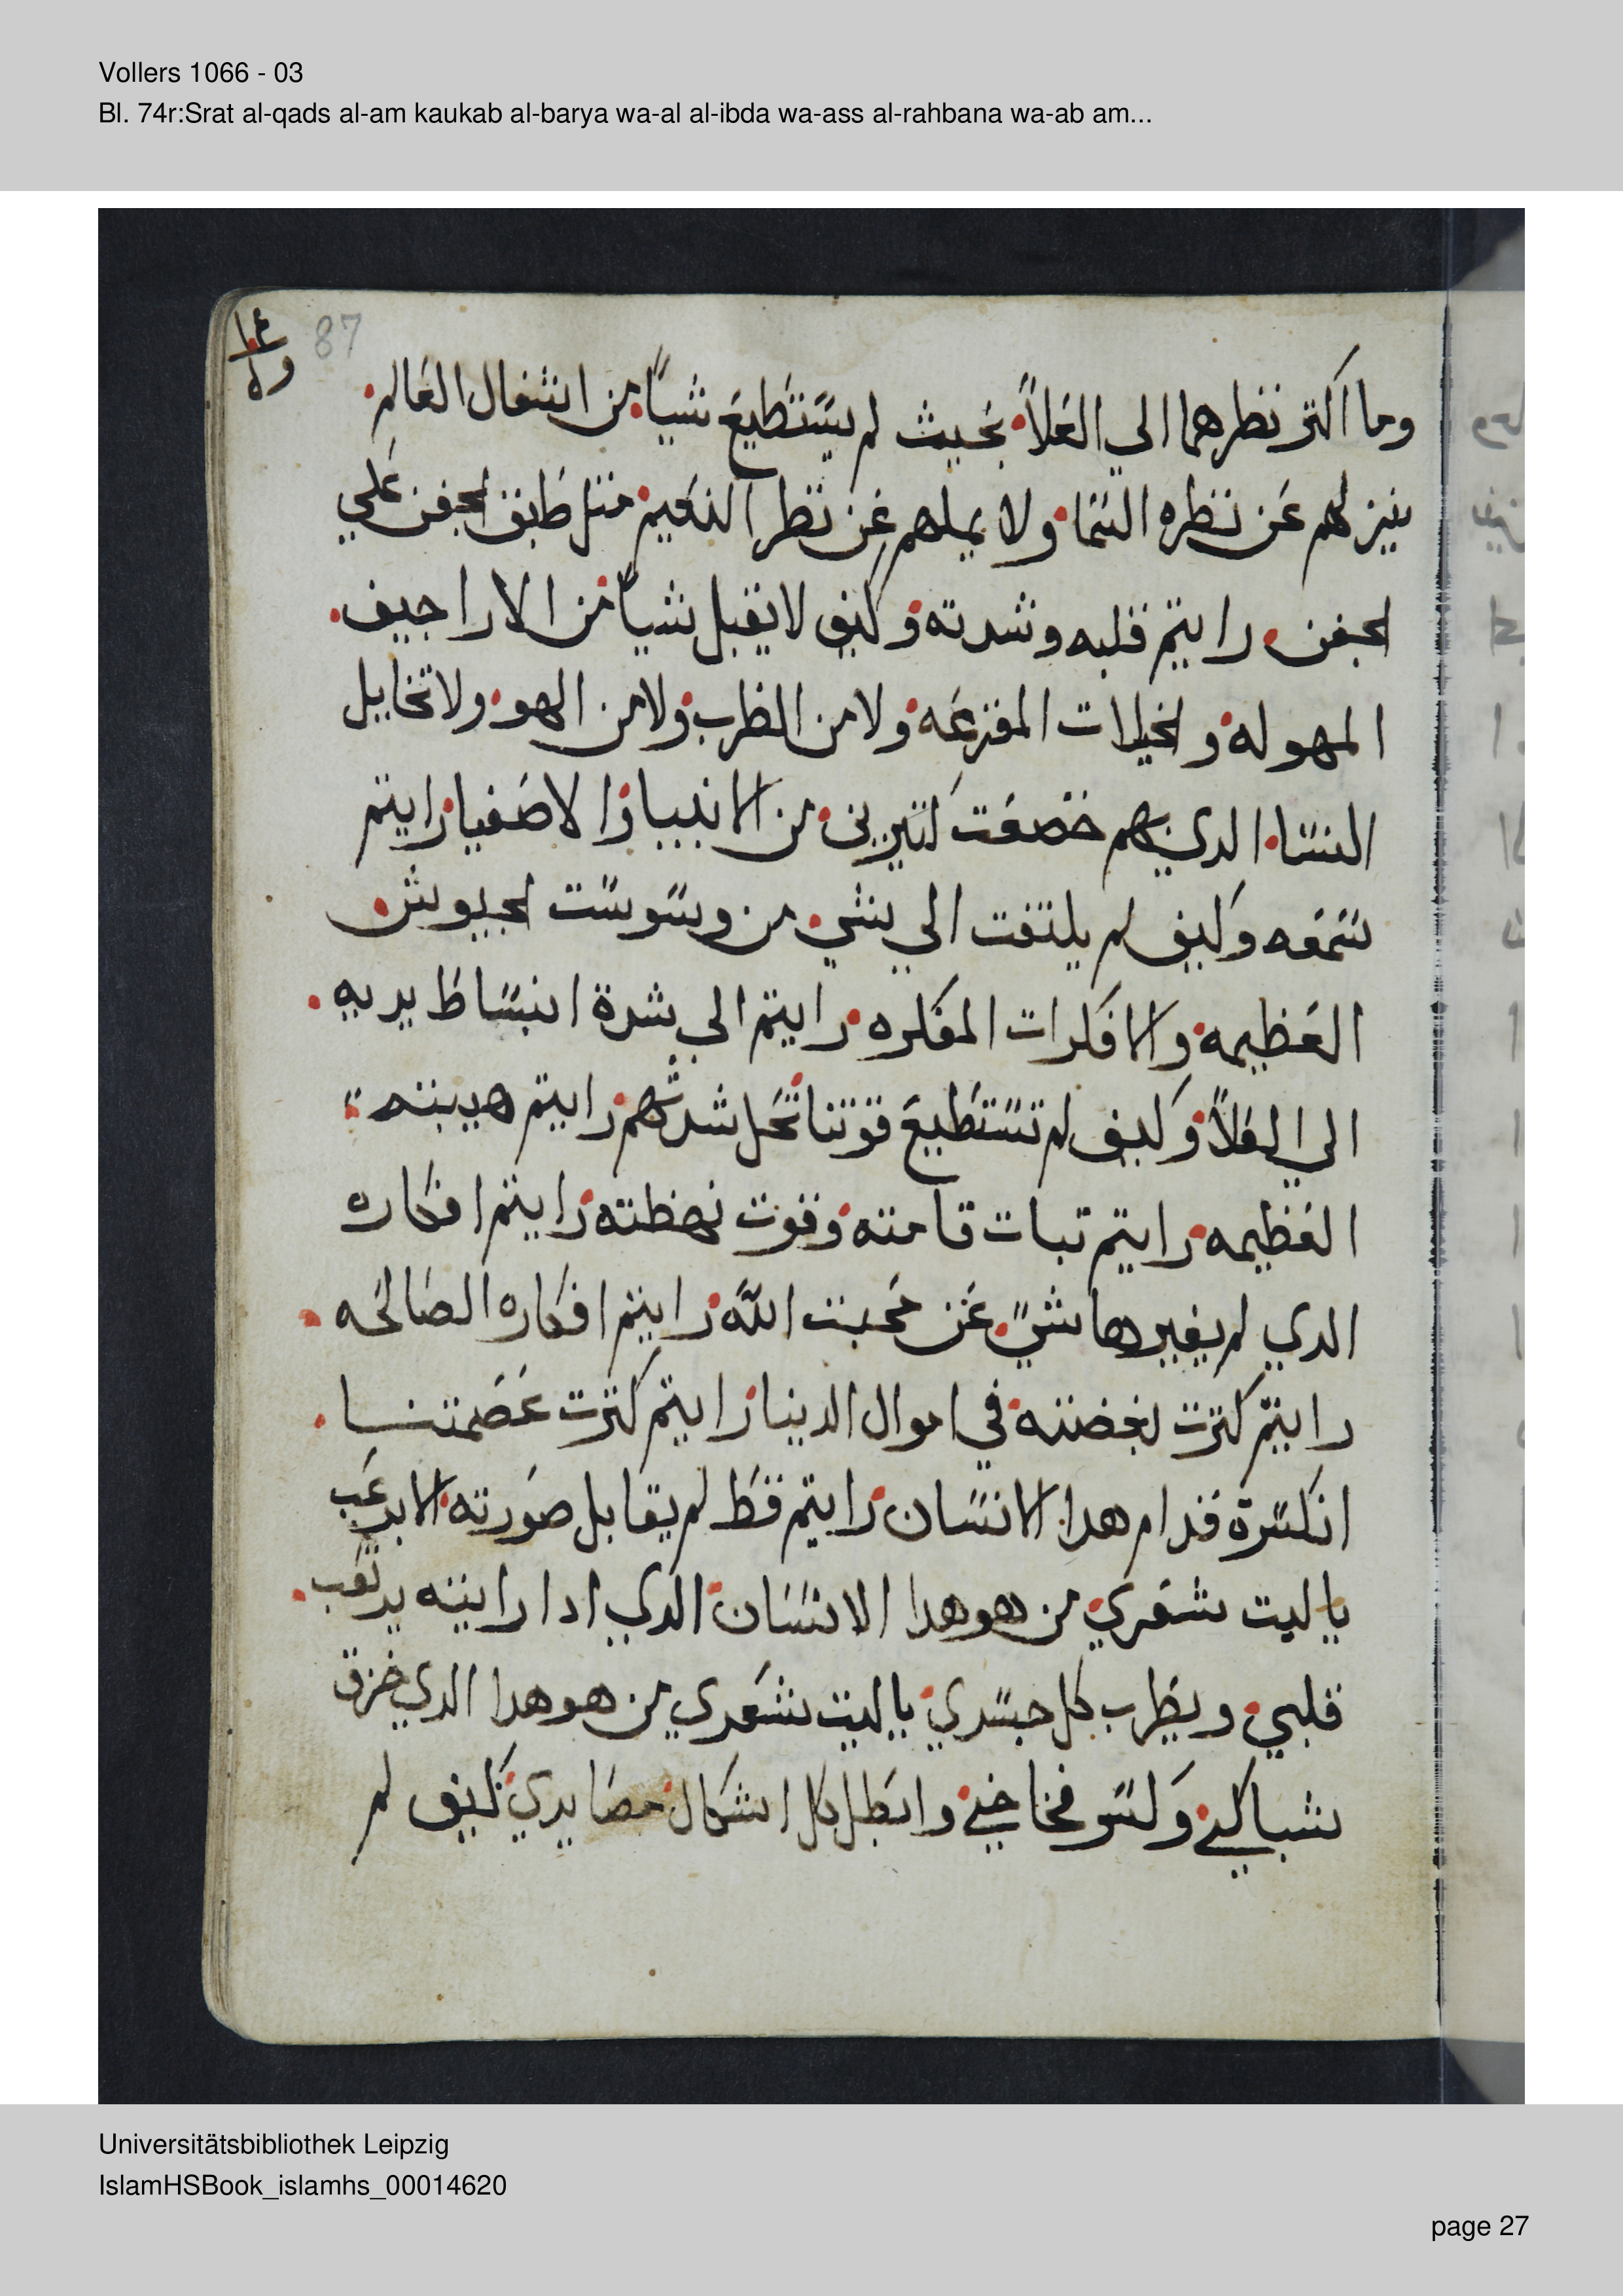 Vollers 1066 - 03
Bl. 74r:Srat al-qads al-am kaukab al-barya wa-al al-ibda wa-ass al-rahbana wa-ab am...
87
وما اكتر نظرهما الي العلاً بحيث لم يستطيع شياً من اشغال العالم
ينزلهم عن نظره السما ولا يملهم عن نظر النعيم متل طابق الجفن علي
لجفن رايتم قلبه وشدته وكيف لا يقبل شياً من الاراجيف
المهوله ولخيلات المفزعه ولا من الطرب ولا من الهو ولا تخايل
النسا الدي بهم خضعت كتيرين من الانبيا والاصفيا رايتم
سمعه وكيف لم يلتفت الي شي من وسوست لجيوش
العظيمه والافكرات المفكره رايتم الي شدة انبساط يديه
الي العلاً وكيف لم تستطيع قوتنا تحل شدتهم رايتم هيبته
العظيمه رايتم تبات قامته وقوت نهظته رايتم افكاره
الدي لم يغيرها شيً عن محبت الله رايتم افكاره الصالحه
رايتم كترت بغضته في اموال الدينا رايتم كترت عصمتنا
انكسرة قدام هدا الانسان رايتم قط لم يقابل صورته الا برعب
يا ليت شعري من هو هدا الانسان الدي ادا رايته يرتعب
قلبي ويظرب كل جسدي يا ليت شعري من هو هدا الدي خزق
شباكي وكسر فخاخي وابطل كل اشكال مصايدي كيف لم
Universitätsbibliothek Leipzig
IslamHSBook_islamhs_00014620
page 27